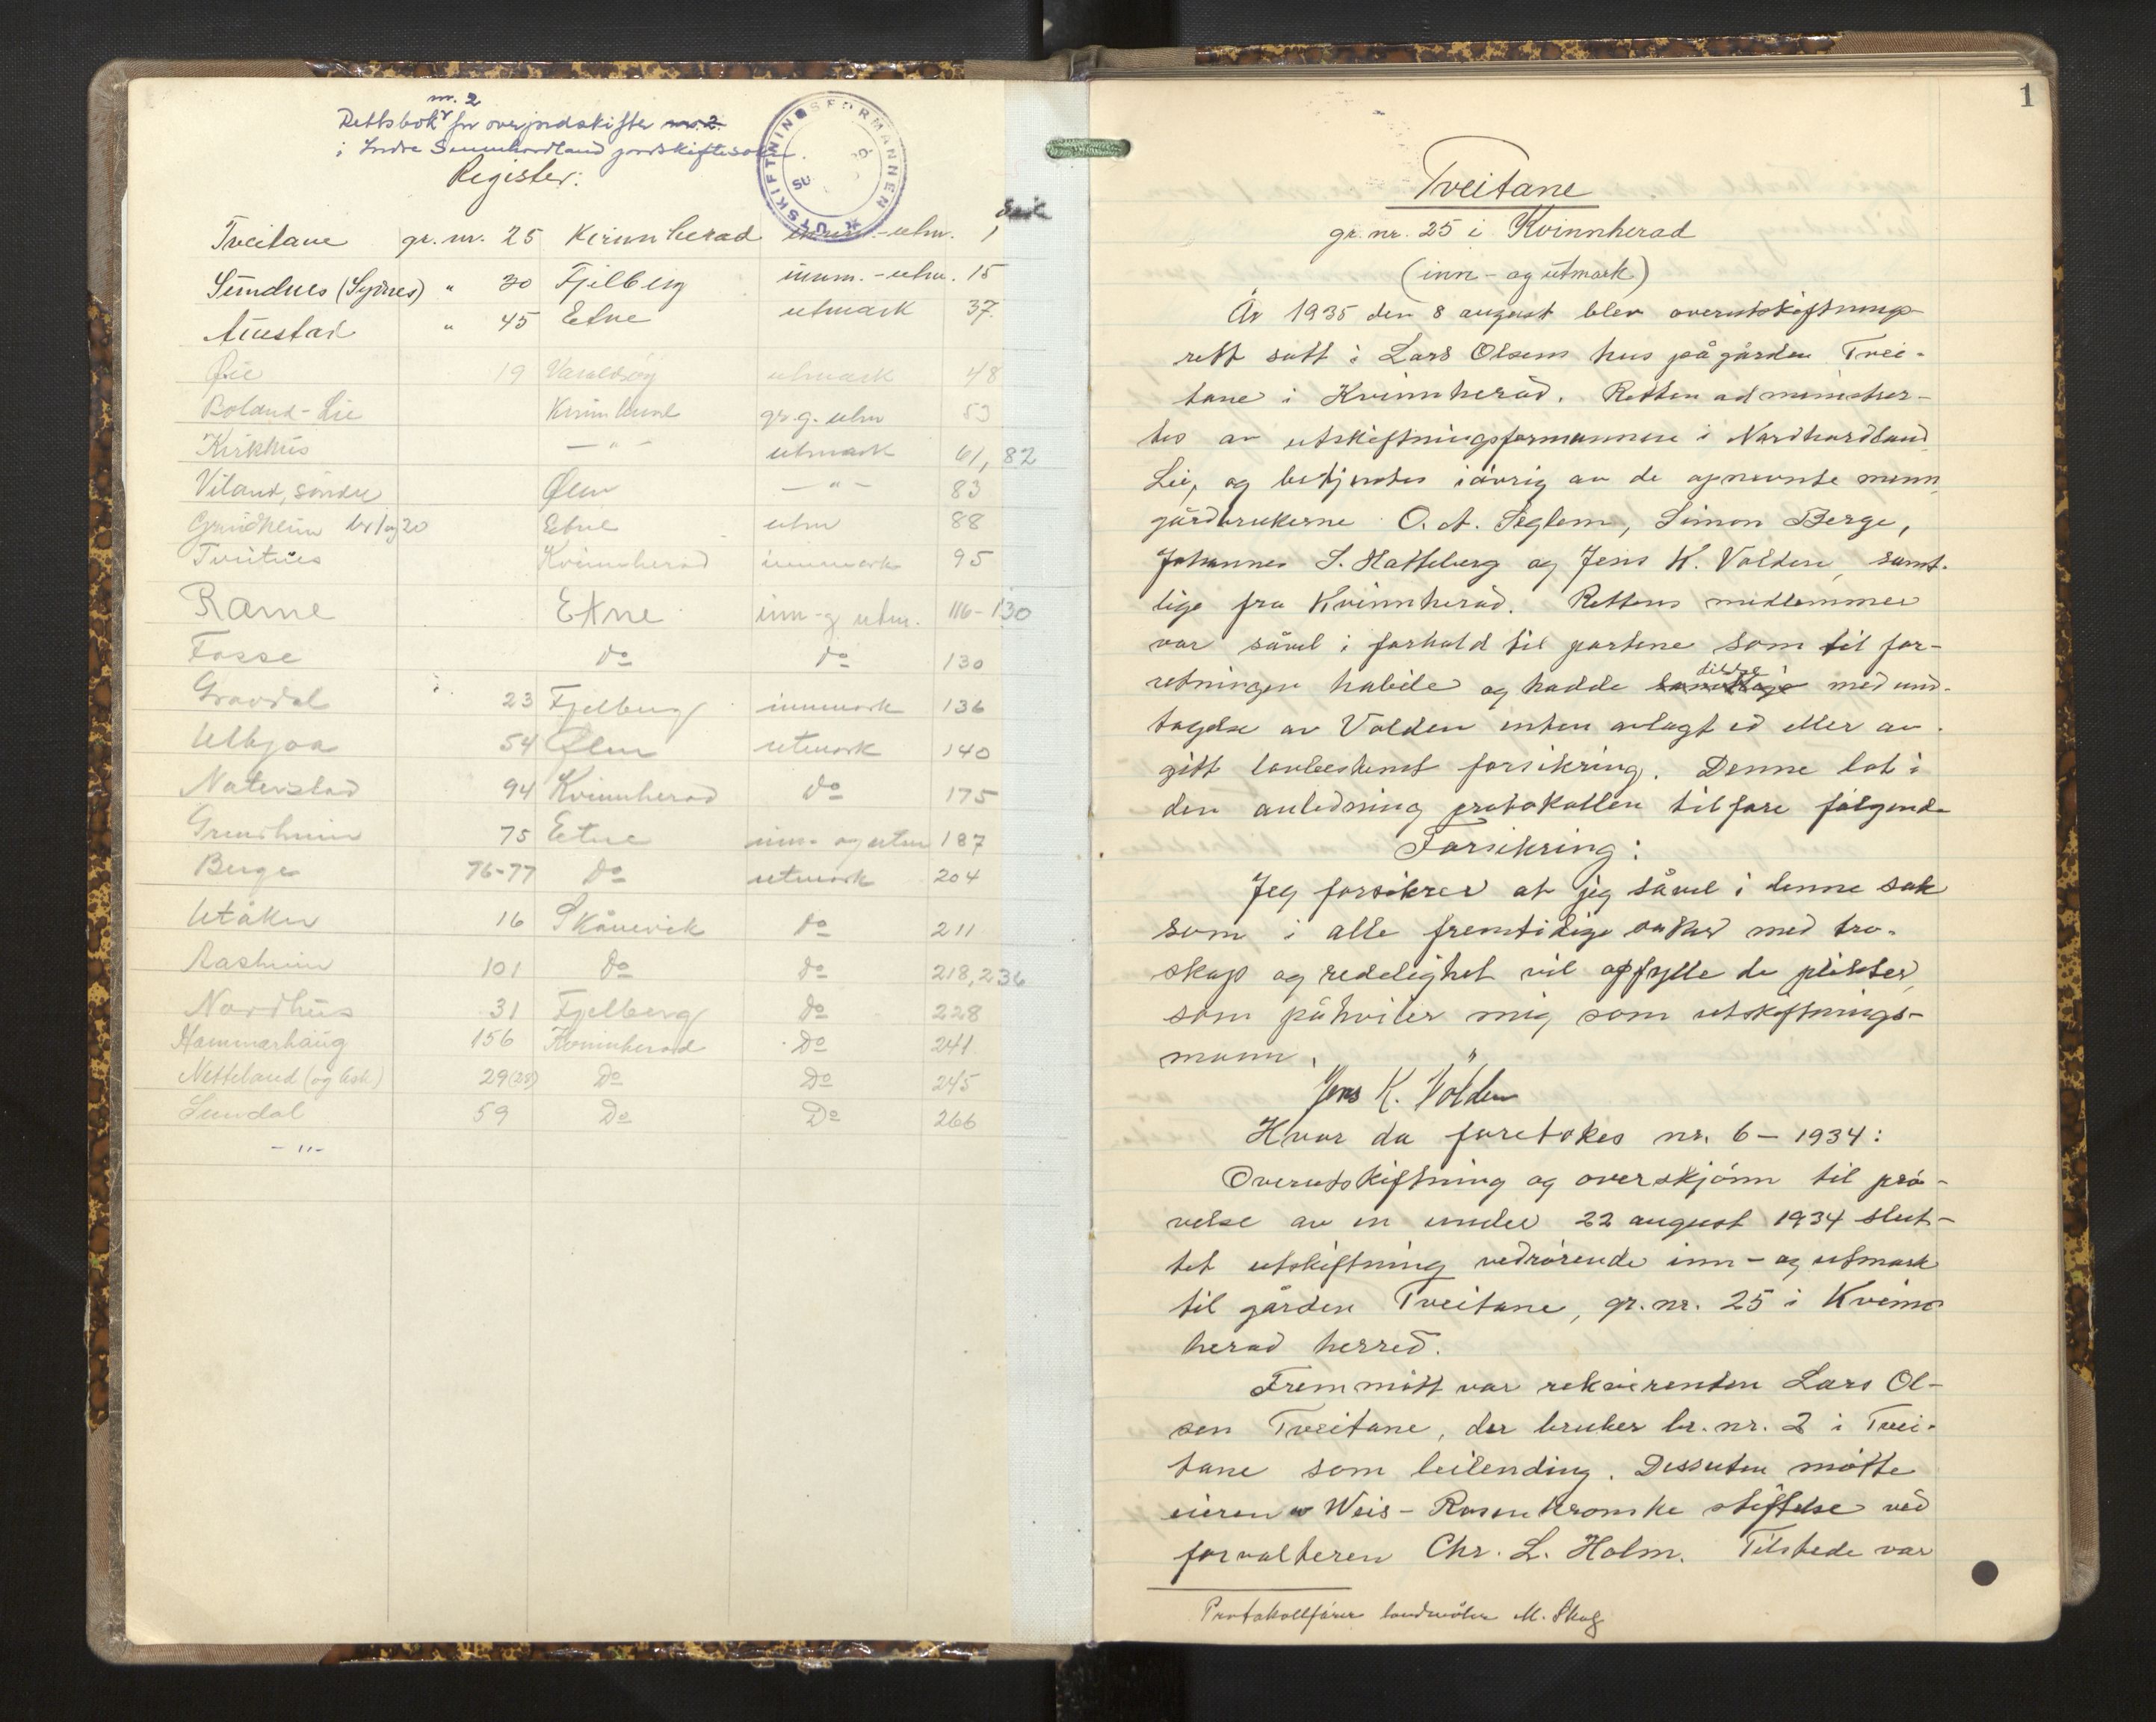 nr. 2
Rettsbok for overjordskifter nr. 2.
i Indre Sunnhordland jordskiftesokn.
Register:
UTSKIFTNINGSFORMANNEN
Side
Tveitane gr. nr. 25 Kvinnherad innm.-utm. 1
Sundnes (Synnes) " 30 Fjelberg innm.-utm. 15
" 45 Etne utmark 37.
19 Varaldsøy utmark 48
Boland-Lie Kvinnherad gr.g. utm 53
Kirkhus —"— utmark 61, 82
Viland, søndre Ølen —"— 83
Grindheim br 1 og 20 Etne utm 88
Tveitnes Kvinnherad innmark 95
Rame Etne inn- og utm. 116-130
Fosse do do 130
Gravdal 23 Fjelberg innmark 136
Ulbjoa 54 Ølen utmark 140
Naterstad 94 Kvinnherad do 175
Grindheim 75 Etne inn- og utm 187
Berge 76-77 Do utmark 204
Utåker 16 Skånevik do 211
Aasheim 101 Do do 218, 236
Nordhus 31 Fjelberg do 228
Hammarhaug 156 Kvinnherad Do 241
Netteland (og Ask) 29(28) Do Do 245
Sundal 59 Do Do 266
- " -
1
Tveitane
gr. nr. 25 i Kvinnherad
(inn- og utmark)
År 1935 den 8 august blev overutskiftnings-
rett satt i Lars Olsens hus på gården Tvei-
tane i Kvinnherad. Retten administrer-
tes av utskiftningsformannen i Nordhordland
Lie, og betjentes iøvrig av de opnevnte menn
gårdbrukerne O. A. Seglem, Simon Berge,
Johannes S. Hatteberg og Jens K. Valden, samt-
lige fra Kvinnherad. Rettens medlemmer
var såvel i forhold til partene som til for-
retningen habile og hadde samtlige tidligere med und-
tagelse av Valden enten avlagt ed eller av-
gitt lovbestemt forsikring. Denne lot i
den anledning protokollen tilføre følgende
Forsikring:
Jeg forsikrer at jeg såvel i denne sak
som i alle fremtidige saker med tro-
skap og redelighet vil opfylle de plikter,
som påhviler mig som utskiftnings-
mann.
Jens K. Völden
Hvor da foretokes nr. 6 - 1934:
Overutskiftning og overskjønn til prø-
velse av en under 22 august 1934 slut-
tet utskiftning vedrørende inn- og utmark
til gården Tveitane, gr. nr. 25 i Kvinn
herad herred.
Fremmøtt var rekvirenten Lars Ol-
sen Tveitane, der bruker br. nr. 2 i Tvei-
tane som leilending. Dessuten møtte
eieren Weis-Rosenkronske stiftelse ved
forvalteren Chr. L. Holm. Tilstede var
Protokollfører landmåler M. Skog